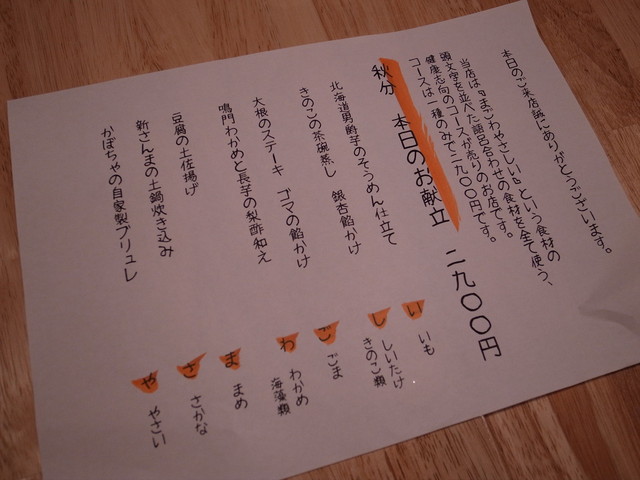 本日のご来店誠にありがとうございます。
当店は『まごわやさしい』という食材の
頭文字を並べた語呂合わせの食材を全て使う、
健康志向のコースが売りのお店です。
コースは一種のみで二九〇〇円です。
秋分 本日のお献立 二九〇〇円
北海道男爵芋のそうめん仕立て
い いも
きのこの茶碗蒸し 銀杏餡かけ
し しいたけ
きのこ類
大根のステーキ ゴマの餡かけ
ご ごま
鳴門わかめと長芋の梨酢和え
わ わかめ
海藻類
豆腐の土佐揚げ
ま まめ
新さんまの土鍋炊き込み
さ さかな
かぼちゃの自家製ブリュレ
や やさい